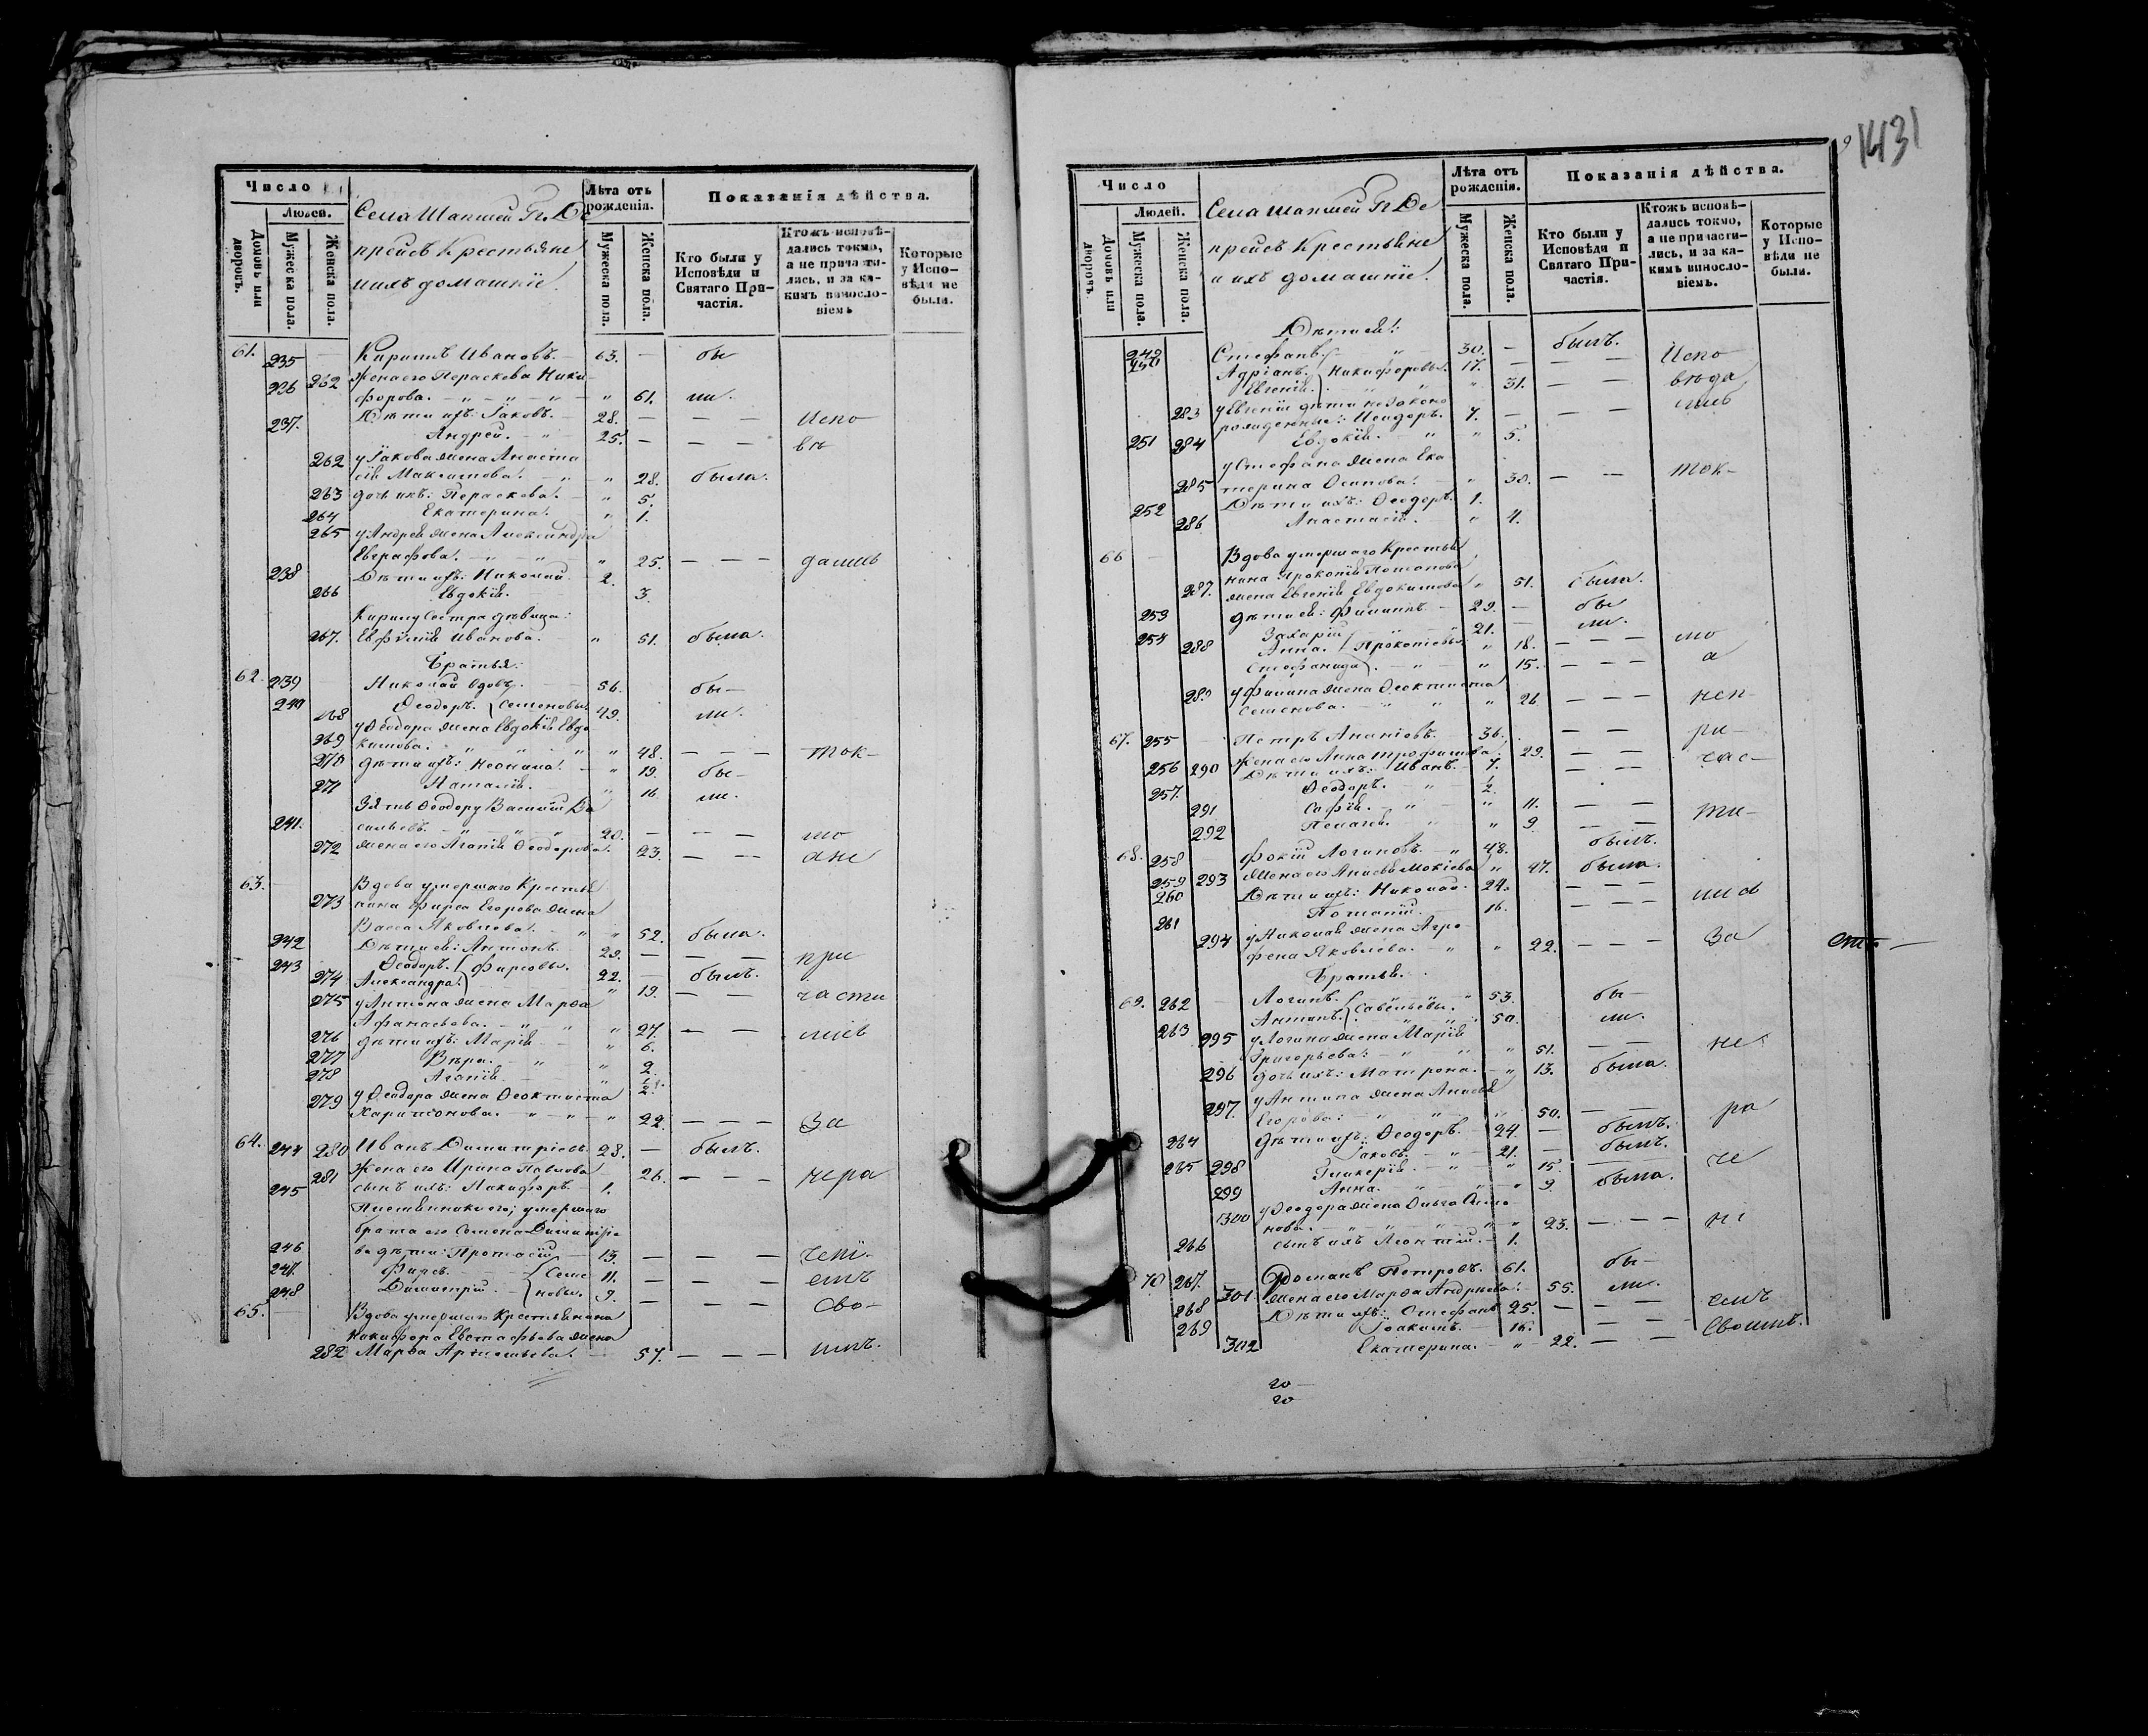 Число
Людей.
Домовъ или дворовъ.
Мужеска пола.
Женска пола.
Села Шапшей Гг. Де
прейсъ Крестьяне
и ихъ домашніе.
Лѣта отъ рожденія.
Мужеска пола.
Женска пола.
Показанія дѣйства.
Кто были у Исповѣди и Святаго Причастія.
Ктожъ исповѣдались токмо, а не причастились, и за какимъ винословіемъ
Которые у Исповѣди не были.
61. 235 — Кирилъ Ивановъ. — 63. — бы
236 262 Жена его Пераскева Ники-
форова. " 61. ли.
237. Дѣти ихъ: Іаковъ. 28. — — — Испо
Андрей. 25. — — — вѣ
262 у Іакова жена Анаста
сія Максимова. " 28. была.
263 дочь ихъ: Пераскева. " 5.
264 Екатерина. " 1.
265 у Андрея жена Александра
Евграфова. " 25. — — — дались
238 Дѣти ихъ: Николай 2.
266 Евдокія. 3.
Кирилу сестра дѣвица:
267. Евфимія Иванова. " 51. была.
Братья:
62. 239 Николай вдовъ. 56. бы—
240 Ѳеодоръ. Семеновы. 49. ли.
268 у Ѳеодора жена Евдокія Евдо
269 кимова. " 48. — — — ток—
270 дѣти ихъ: Неонила. " 19. бы—
271 Наталія. " 16 ли.
Зять Ѳеодору Василій Ва
241. сильевъ. 20. — — — мо
272 жена его Агапія Ѳеодорова. 23. — — — а не
63. — Вдова умершаго Крестья
273 нина Фирса Егорова жена
Васса Яковлева. " 52. была.
242 Дѣти ея: Антонъ. 29. — — — при
243 Ѳеодоръ. Фирсовы. 22. — былъ.
274 Александра. " 19. — — части
275 у Антона жена Марѳа
Афанасьева. " 27. — — лись
276 дѣти ихъ: Марія " 6.
277 Вѣра. " 2
278 Агапія. " ½.
279 у Ѳеодора жена Ѳеоктиста
Харитонова. " 22. — — — За
64. 244 280 Иванъ Димитріевъ. 28. — былъ.
281 Жена его Ирина Павлова 26. — — — нера
245 сынъ ихъ: Никифоръ. 1.
Племянники его; умершаго
брата его Семена Димитріе
246 ва дѣти: Протасій 13. — — —
247. Фирсъ. Семе 11. — — — емъ
248 Димитрій. новы. 9. — — — сво—
65. — Вдова умершаго Крестьянина
Никифора Евстафьева жена
282 Марѳа Артемьева. — 57. — — — имъ.
1431
Число
Людей.
Домовъ или дворовъ.
Мужеска пола.
Женска пола.
Села Шапшей Гг. Де
прейсъ Крестьяне
и ихъ домашніе.
Лѣта отъ рожденія.
Мужеска пола.
Женска пола.
Показанія дѣйства.
Кто были у Исповѣди и Святаго Причастія.
Ктожъ исповѣдались токмо, а не причастились, и за какимъ винословіемъ.
Которые у Исповѣди не были.
Дѣти ея:
249 Стефанъ. 30. — былъ.
250 Адріанъ. Никифоровы. 17. — — — Испо
Евгенія. " 31. — — вѣда
283 у Евгеніи дѣти незаконо
рожденные: Исидоръ. 7. — — — лись
251 284 Евдокія. " 5.
у Стефана жена Ека
285 терина Осипова. " 30. — — ток—
252 Дѣти ихъ: Ѳеодоръ. 1.
286 Анастасія. " 4.
66 — Вдова умершаго Крестья
нина Прокопія Потапова
287. жена Евгенія Евдокимова " 51. была.
253 дѣти ея: Филиппъ. 29. — бы
254 Захарій 21. — ли.
288 Анна. Прокопіевы " 18. — — — мо
Стефанида. " 15. — — — а
289 у Филипа жена Ѳеоктиста
Семенова. " 26 — — — неп—
67. 255 Петръ Ананіевъ. 36. — — ри—
256 290 Жена его Анна Трофимова. 29. — — час—
Дѣти ихъ: Иванъ. 7.
257. Ѳеодоръ. ½.
291 Софія. " 11. — —
292 Пелагея. " 9 — — ти—
68. 258 Фокій Логиновъ. 48. былъ.
259 293 Жена его Анисья Мокіева " 47. была.
260 Дѣти ихъ: Николай. 24. — — — лись
261 Потапій. 16. — — —
294 у Николая жена Агро-
фена Яковлева. " 22. — — — За отъ —
Братья.
69. 262 Логинъ. Савельевы. 53. бы—
263 Антипъ. 50. ли.
295 у Логина жена Марія
Григорьева: " 51. — — не
296 дочь ихъ: Матрона. — " 13. была.
297. у Антипа жена Анисья
Егорова: " 50. — — ра
264 Дѣти ихъ: Ѳеодоръ. 24. — былъ.
265 Іаковъ. 21. — былъ.
298 Гликерія. " 15. — — че
299 Анна. " 9. была.
300 у Ѳеодора жена Ольга
нова. " 23. — — — ні
266 сынъ ихъ Леонтій. 1.
70 267. Романъ Петровъ. 61. бы—
301 Жена его Марѳа Андреева. 55. ли.
268 Дѣти ихъ: Стефанъ 25. — — — емъ
269 Іоакимъ. 16. — — —
302 Екатерина. " 22. — — своимъ.
20 —
20